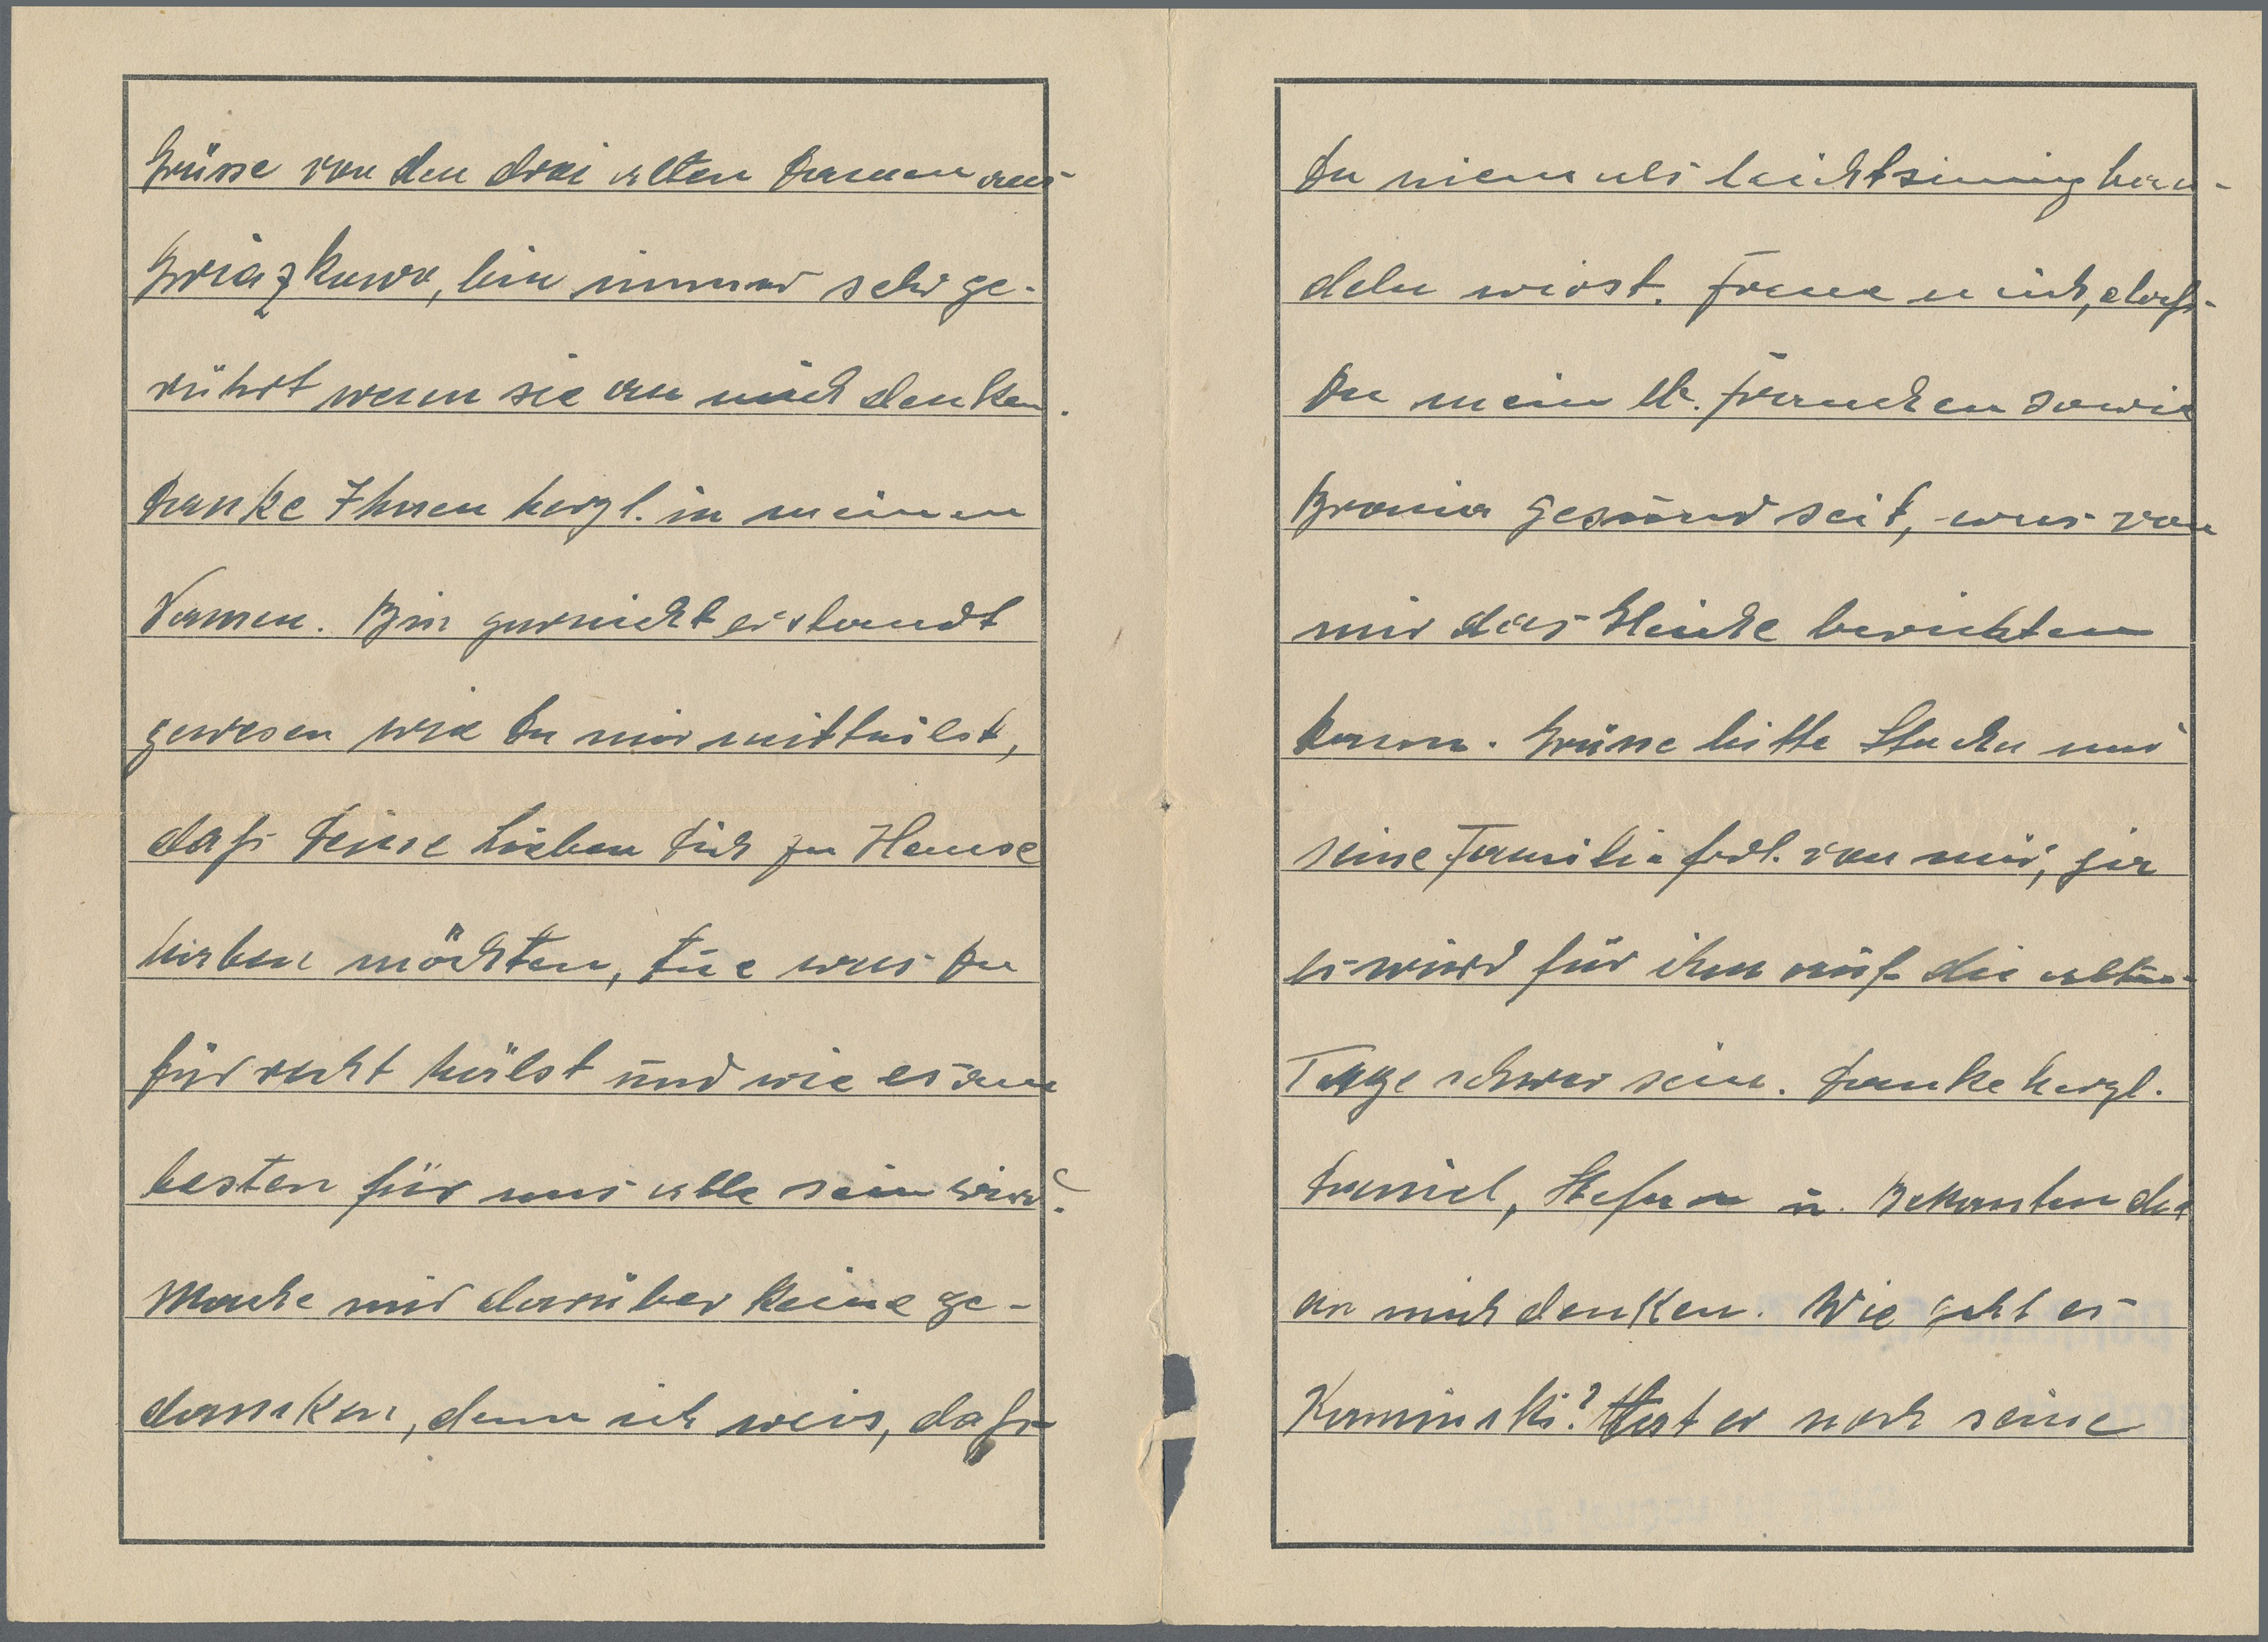 Grüsse von den drei alten Damen aus
Gwiązkowo, bin immer sehr ge-
rührt wenn sie an mich denken.
Danke Ihnen herzl. in meinem
Namen. Bin garnicht erstaudt
gewesen wie Du mir mitteilst,
daß Deine Lieben Dich zu Hause
haben möchten, tue was Du
für recht hälst und wie es am
besten für uns alle sein wird.
Mache mir darüber keine ge-
danken, denn ich weis, daß
Du niemals leichtsinnig han-
deln wirst. Freue mich, daß
Du mein lb. Frauchen sowie
Bronia gesund seit, was von
mir das Gleiche berichten
kann. Grüsse bitte Stacha und
seine Familie frdl. von mir, ja
es wird für ihm auf die alten
Tage schwer sein. Danke herzl.
Daniel, Stefan u. Bekanten das
an mich denken. Wie geht es
Kaminski? Hat er noch seine